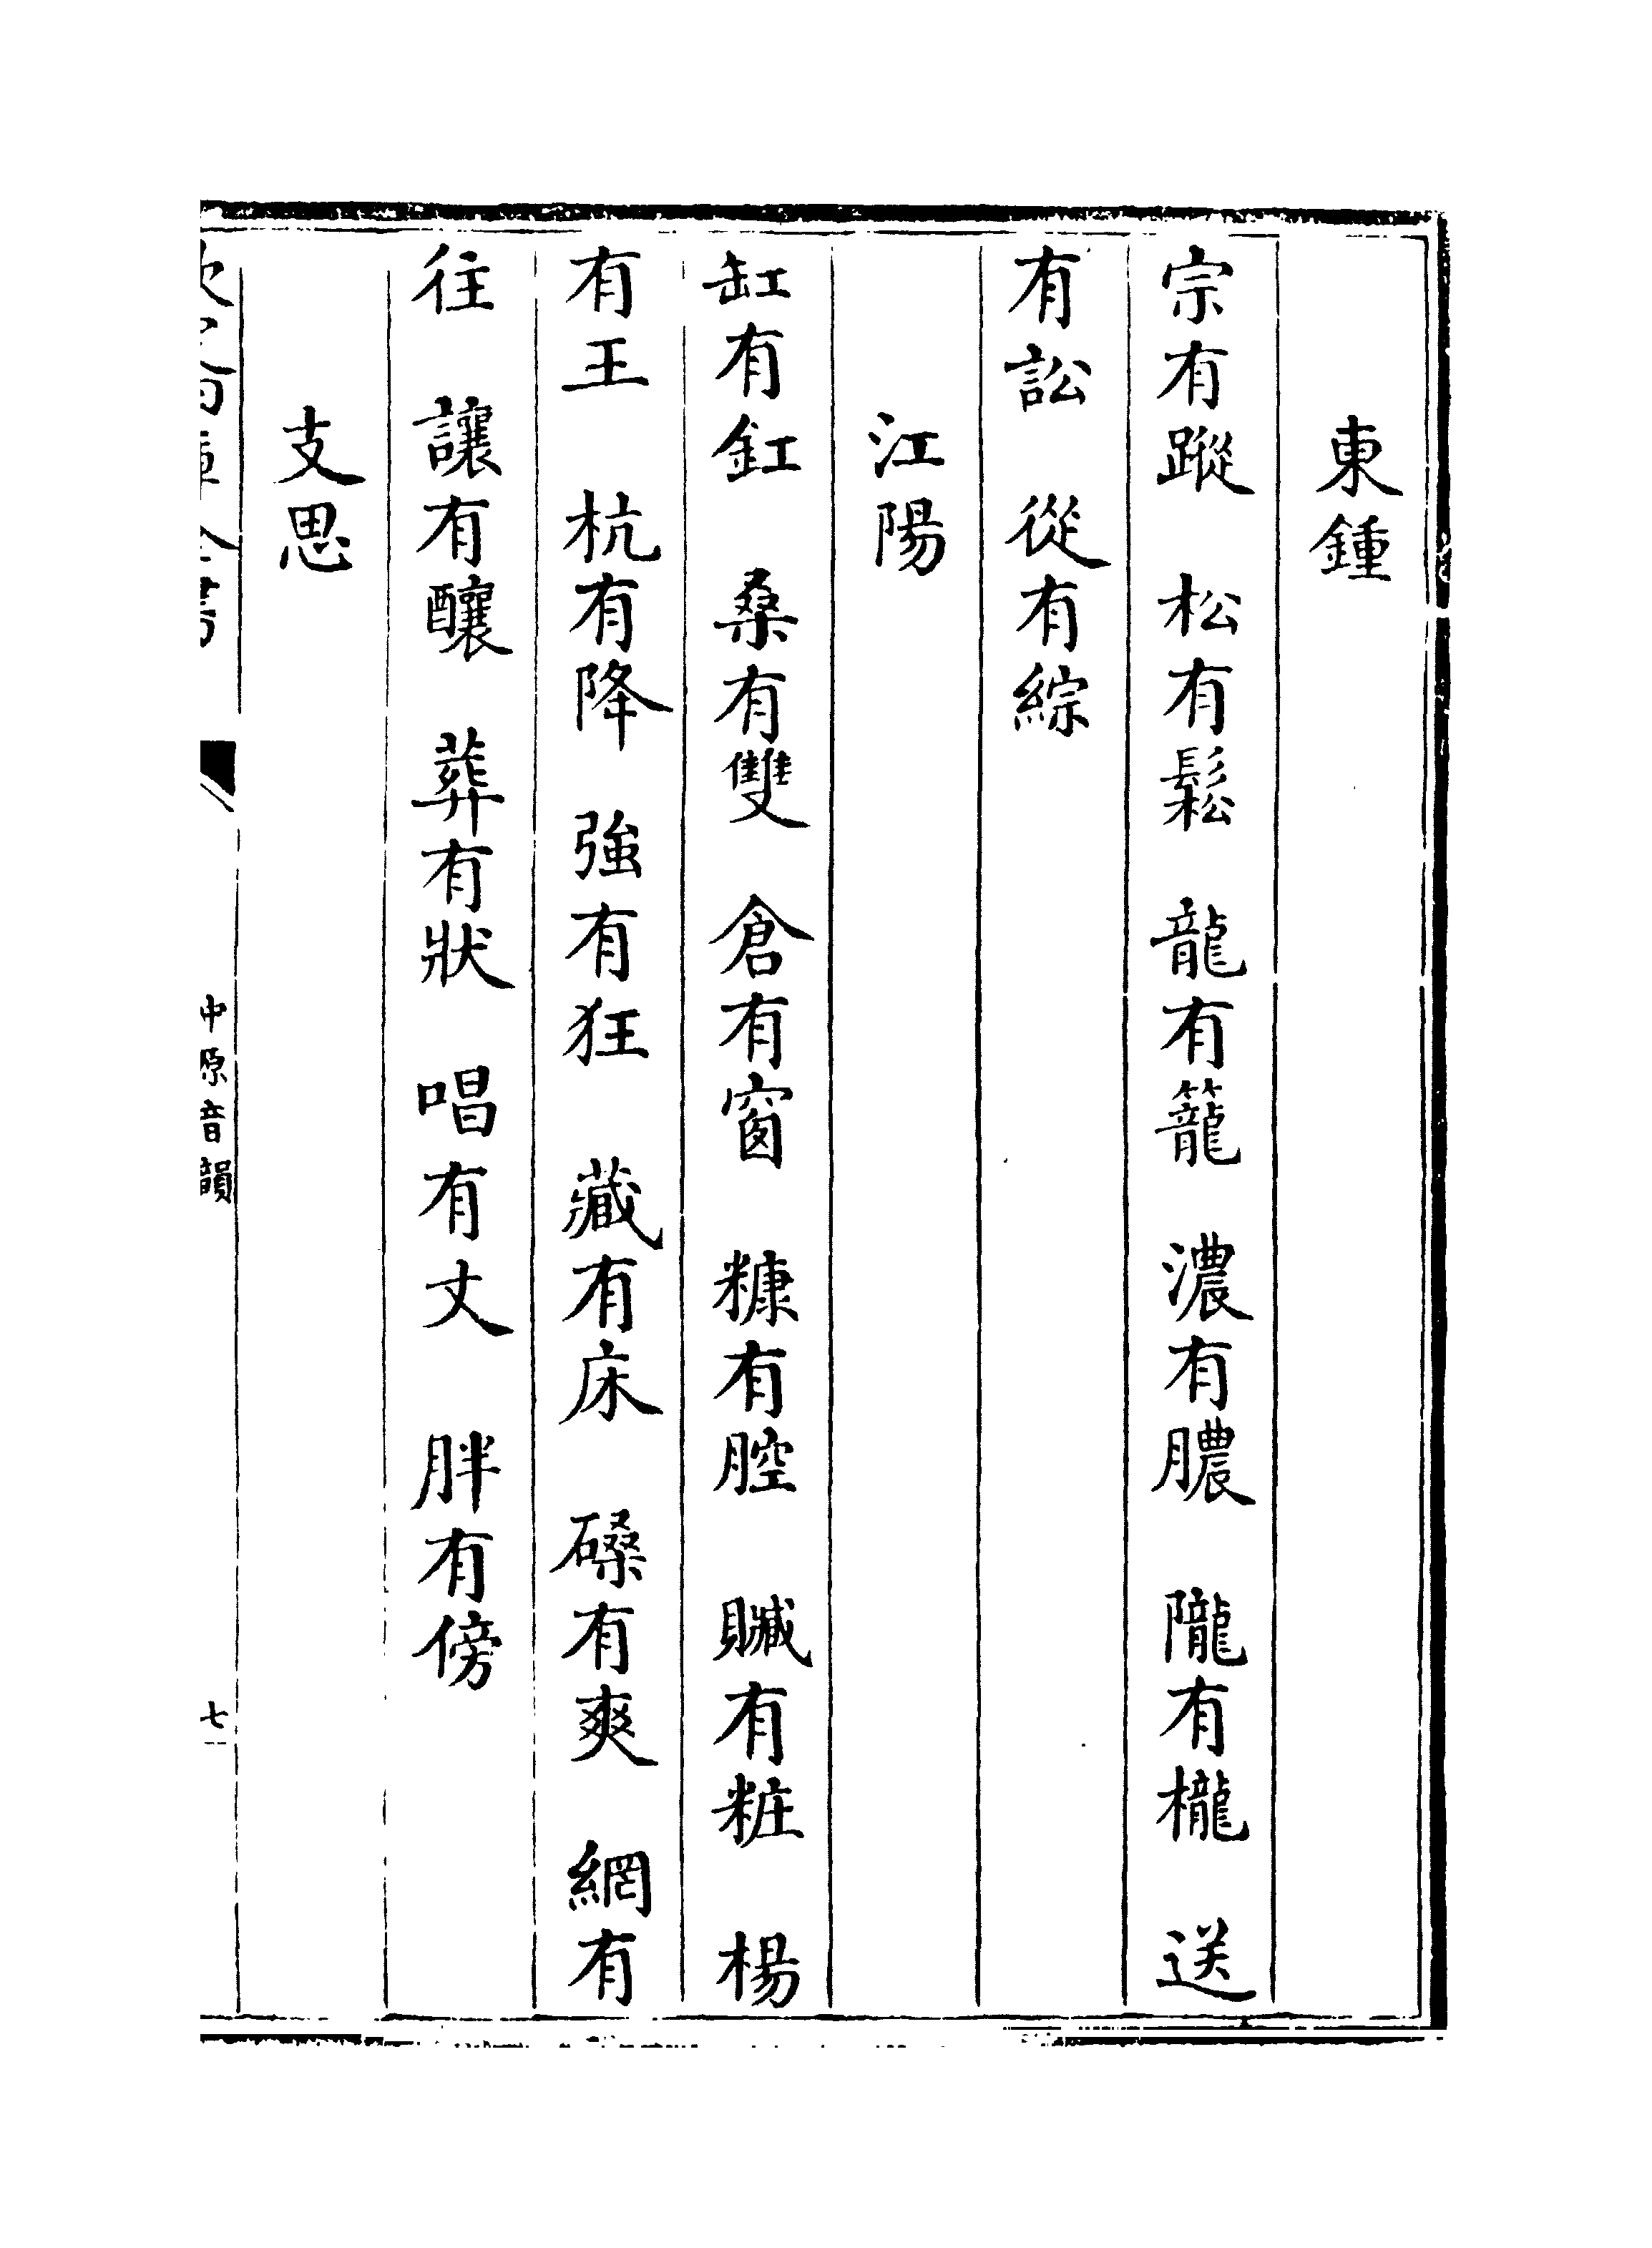 東鍾
宗有蹤　松有鬆　龍有籠　濃有膿　隴有櫳　送
有訟　從有綜
江陽
缸有釭　桑有雙　倉有窗　糠有腔　贓有粧　楊
有王　杭有降　強有狂　藏有床　磉有爽　網有
往　讓有釀　葬有狀　唱有丈　胖有傍
支思
欽定四庫全書
中原音韻
七